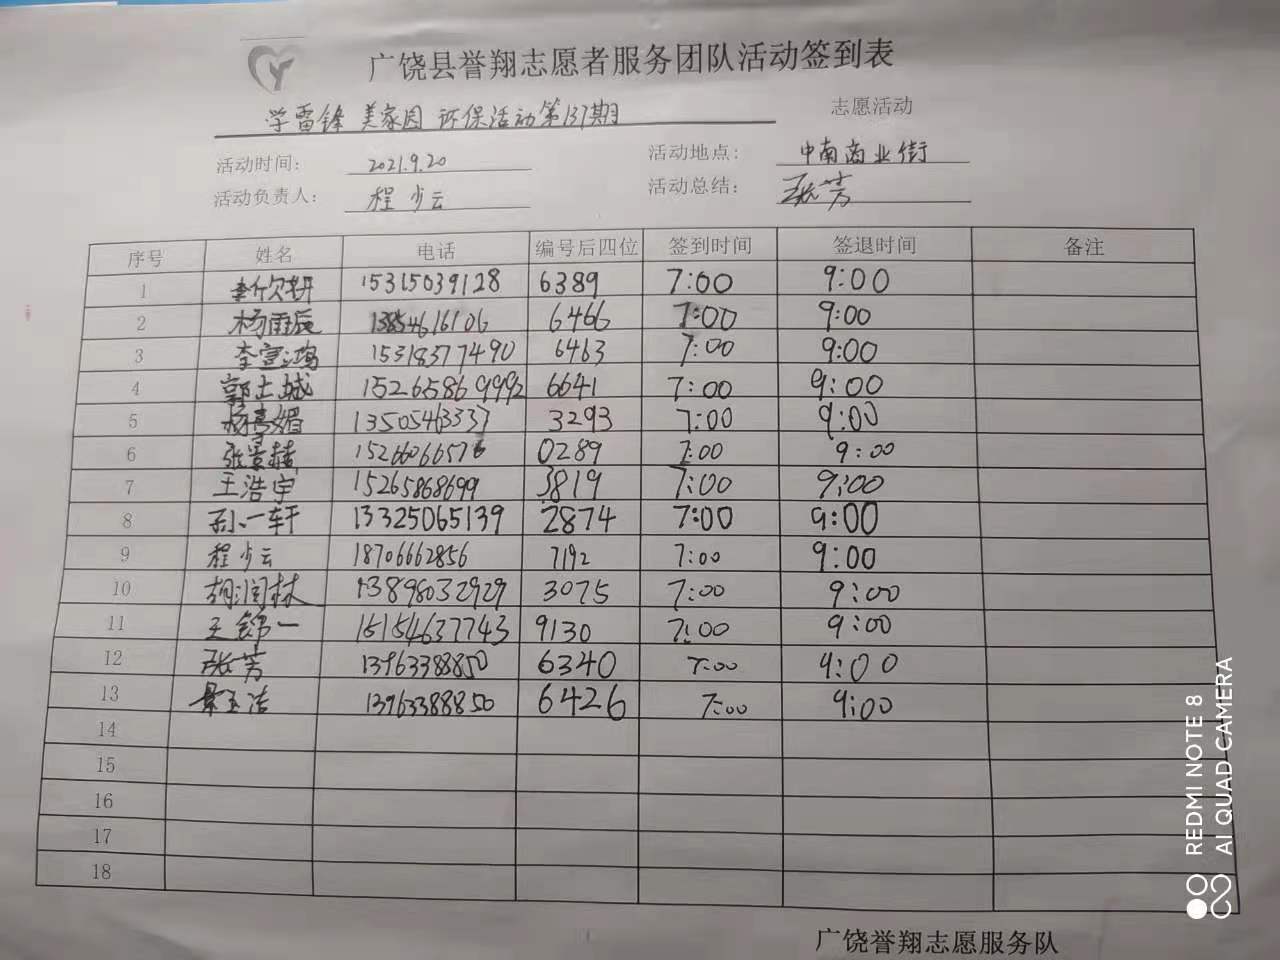 广饶县誉翔志愿者服务团队活动签到表
学雷锋 美家园 环保活动第137期 志愿活动
活动时间: 2021.9.20 活动地点: 中南商业街
活动负责人: 程少云 活动总结: 张芳
序号 姓名 电话 编号后四位 签到时间 签退时间 备注
1 李欣妍 15315039128 6389 7:00 9:00
2 杨雨辰 13854616106 6466 7:00 9:00
3 李宣鸿 15318377490 6463 7:00 9:00
4 郭士城 15265869992 6641 7:00 9:00
5 杨 媚 13505463337 3293 7:00 9:00
6 张景赫 15266066576 0289 7:00 9:00
7 王浩宇 15265868699 3819 7:00 9:00
8 孙一轩 13325065139 2874 7:00 9:00
9 程少云 18706662856 7192 7:00 9:00
10 胡润林 13898032929 3075 7:00 9:00
11 王锦一 15154637743 9130 7:00 9:00
12 张芳 13963388850 6340 7:00 9:00
13 景玉洁 13963388850 6426 7:00 9:00
14
15
16
17
18
广饶誉翔志愿服务队
REDMI NOTE 8
AI QUAD CAMERA